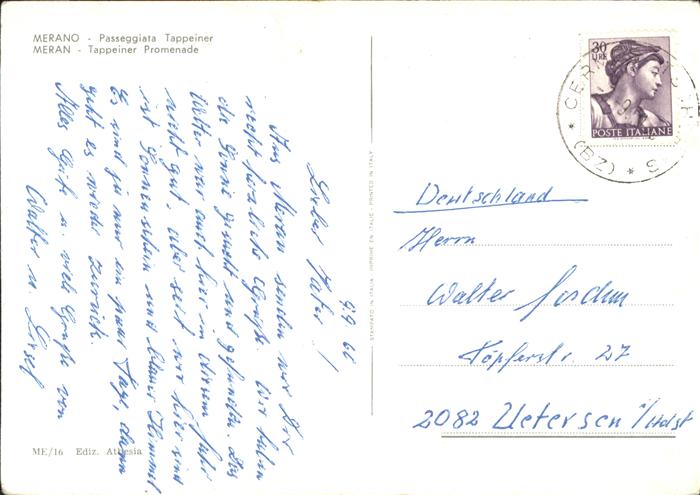 MERANO - Passeggiata Tappeiner
MERAN - Tappeiner Promenade
9.9 66
Lieber Vater!
Aus Meran senden wir Dir
recht herzliche Grüße. Wir haben
die Sonne gesucht und gefunden. Das
Wetter war auch hier in diesem Jahr
nicht gut, aber seit wir hier sind
ist Sonnenschein und blauer Himmel.
Es sind ja nur ein paar Tage, dann
geht es wieder zurück.
Alles Gute u. viele Grüße von
Walter u. Liesel
ME/16 Ediz. Athesia
STAMPATO IN ITALIA - IMPRIMÉ EN ITALIE - PRINTED IN ITALY
30
LIRE
POSTE ITALIANE
(BZ)
Deutschland
Herrn
Walter
Töpferstr. 27
2082 Uetersen i/Holst